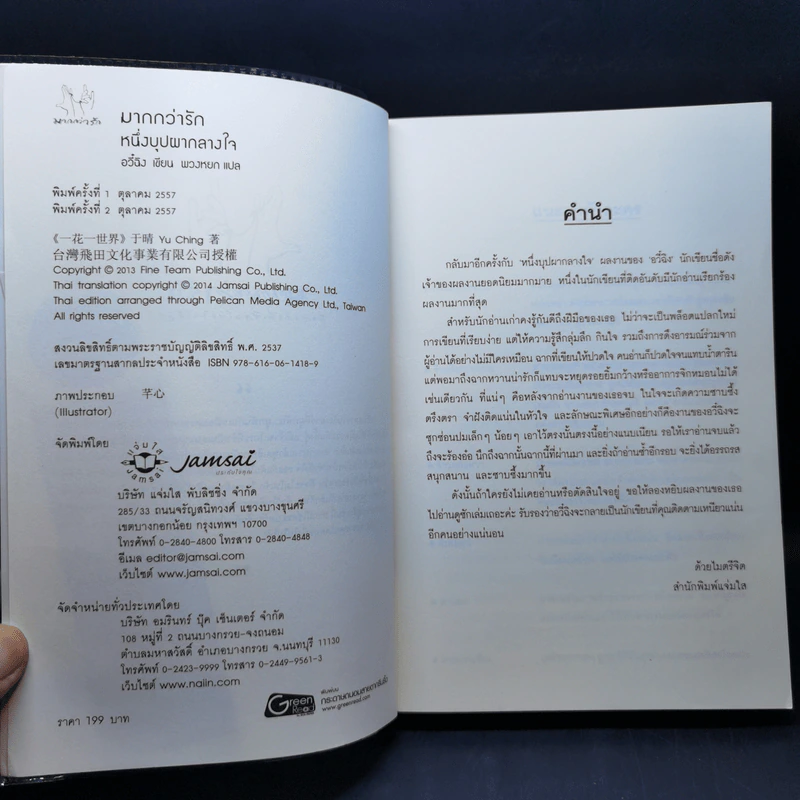 มากกว่ารัก
มากกว่ารัก
หนึ่งบุปผากลางใจ
อวี๋ฉิง เขียน พวงหยก แปล
พิมพ์ครั้งที่ 1 ตุลาคม 2557
พิมพ์ครั้งที่ 2 ตุลาคม 2557
《一花一世界》于晴 Yu Ching 著
台灣飛田文化事業有限公司授權
Copyright © 2013 Fine Team Publishing Co., Ltd.
Thai translation copyright © 2014 Jamsai Publishing Co., Ltd.
Thai edition arranged through Pelican Media Agency Ltd., Taiwan
All rights reserved
สงวนลิขสิทธิ์ตามพระราชบัญญัติลิขสิทธิ์ พ.ศ. 2537
เลขมาตรฐานสากลประจำหนังสือ ISBN 978-616-06-1418-9
ภาพประกอบ 芊心
(Illustrator)
จัดพิมพ์โดย
แจ่มใส
Jamsai
Jamsai
ประทับใจคุณ
บริษัท แจ่มใส พับลิชชิ่ง จำกัด
285/33 ถนนจรัญสนิทวงศ์ แขวงบางขุนศรี
เขตบางกอกน้อย กรุงเทพฯ 10700
โทรศัพท์ 0-2840-4800 โทรสาร 0-2840-4848
อีเมล editor@jamsai.com
เว็บไซต์ www.jamsai.com
จัดจำหน่ายทั่วประเทศโดย
บริษัท อมรินทร์ บุ๊ค เซ็นเตอร์ จำกัด
108 หมู่ที่ 2 ถนนบางกรวย-จงถนอม
ตำบลมหาสวัสดิ์ อำเภอบางกรวย จ.นนทบุรี 11130
โทรศัพท์ 0-2423-9999 โทรสาร 0-2449-9561-3
เว็บไซต์ www.naiin.com
ราคา 199 บาท
Green Read
พิมพ์บน
กระดาษถนอมสายตากรีนรี้ด
www.greenread.com
คำนำ
กลับมาอีกครั้งกับ 'หนึ่งบุปผากลางใจ' ผลงานของ 'อวี๋ฉิง' นักเขียนชื่อดัง
เจ้าของผลงานยอดนิยมมากมาย หนึ่งในนักเขียนที่ติดอันดับมีนักอ่านเรียกร้อง
ผลงานมากที่สุด
สำหรับนักอ่านเก่าคงรู้กันดีถึงฝีมือของเธอ ไม่ว่าจะเป็นพล็อตแปลกใหม่
การเขียนที่เรียบง่าย แต่ให้ความรู้สึกลุ่มลึก กินใจ รวมถึงการดึงอารมณ์ร่วมจาก
ผู้อ่านได้อย่างไม่มีใครเหมือน ฉากที่เขียนให้ปวดใจ คนอ่านก็ปวดใจจนแทบน้ำตาริน
แต่พอมาถึงฉากหวานน่ารักก็แทบจะหยุดรอยยิ้มกว้างหรืออาการจิกหมอนไม่ได้
เช่นเดียวกัน ที่แน่ๆ คือหลังจากอ่านงานของเธอจบ ในใจจะเกิดความซาบซึ้ง
ตรึงตรา จำฝังติดแน่นในหัวใจ และลักษณะพิเศษอีกอย่างก็คืองานของอวี๋ฉิงจะ
ซุกซ่อนปมเล็กๆ น้อยๆ เอาไว้ตรงนั้นตรงนี้อย่างแนบเนียน รอให้เราอ่านจบแล้ว
ถึงจะร้องอ๋อ นึกถึงฉากนั้นฉากนี้ที่ผ่านมา และยิ่งถ้าอ่านซ้ำอีกรอบ จะยิ่งได้อรรถรส
สนุกสนาน และซาบซึ้งมากขึ้น
ดังนั้นถ้าใครยังไม่เคยอ่านหรือตัดสินใจอยู่ ขอให้ลองหยิบผลงานของเธอ
ไปอ่านดูซักเล่มเถอะค่ะ รับรองว่าอวี๋ฉิงจะกลายเป็นนักเขียนที่คุณติดตามเหนียวแน่น
อีกคนอย่างแน่นอน
ด้วยไมตรีจิต
สำนักพิมพ์แจ่มใส